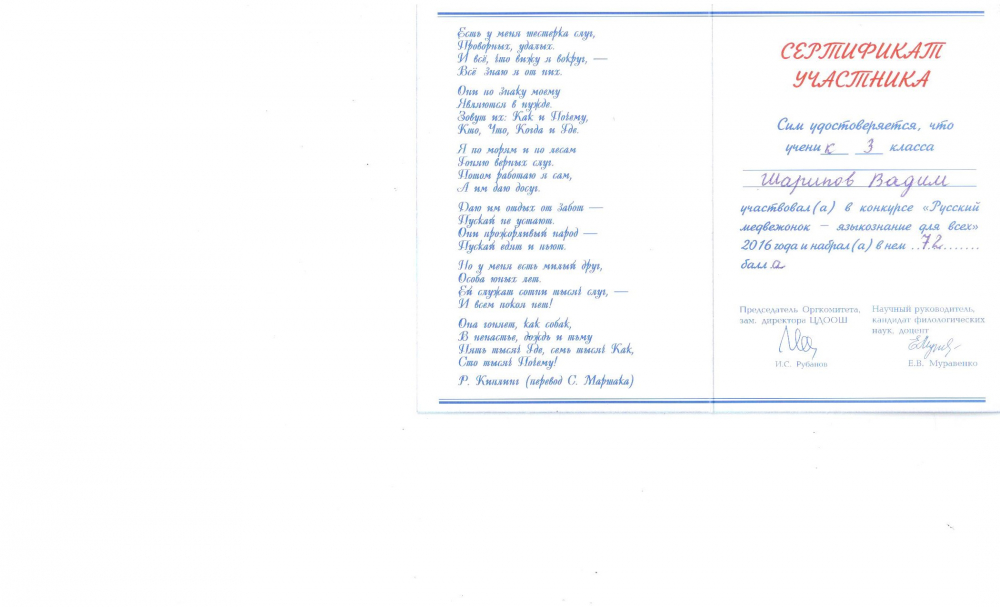 Есть у меня шестерка слуг,
Проворных, удалых.
И всё, что вижу я вокруг, —
Всё знаю я от них.
Они по знаку моему
Являются в нужде.
Зовут их: Как и Почему,
Кто, Что, Когда и Где.
Я по морям и по лесам
Гоняю верных слуг.
Потом работаю я сам,
А им даю досуг.
Даю им отдых от забот —
Пускай не устают.
Они прожорливый народ —
Пускай едят и пьют.
Но у меня есть милый друг,
Особа юных лет.
Ей служат сотни тысяч слуг, —
И всем покоя нет!
Она гоняет, как собак,
В ненастье, дождь и тьму
Пять тысяч Где, семь тысяч Как,
Сто тысяч Почему!
Р. Киплинг (перевод С. Маршака)
СЕРТИФИКАТ
УЧАСТНИКА
Сим удостоверяется, что
ученик 3 класса
Шарипов Вадим
участвовал(а) в конкурсе «Русский
медвежонок – языкознание для всех»
2016 года и набрал(а) в нем ..72.......
балла
Председатель Оргкомитета,
зам. директора ЦДООШ
И.С. Рубанов
Научный руководитель,
кандидат филологических
наук, доцент
Е.В. Муравенко